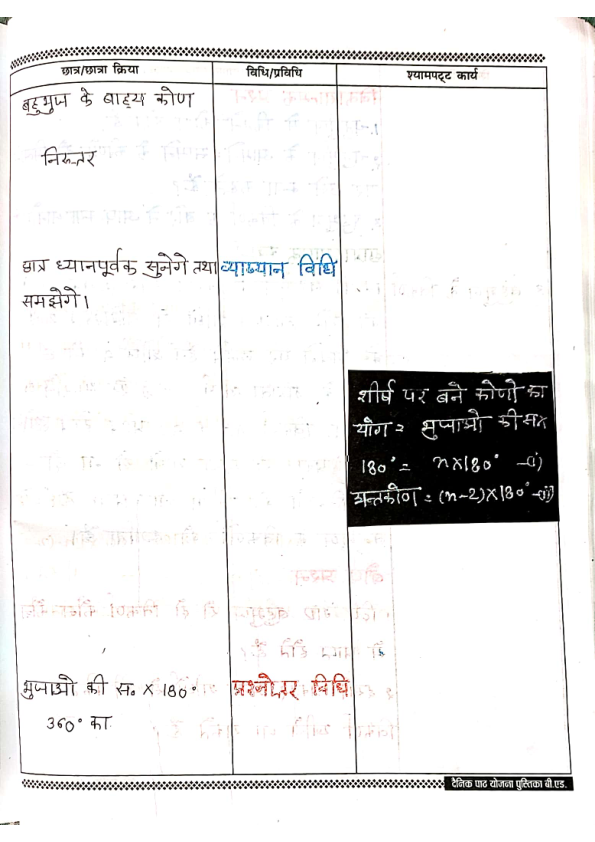 छात्र/छात्रा क्रिया
विधि/प्रविधि
श्यामपट्ट कार्य
बहुभुज के बाह्य कोण
निरूत्तर
छात्र ध्यानपूर्वक सुनेगे तथा
समझेगे।
व्याख्यान विधि
शीर्ष पर बने कोणो का
योग = भुजाओ की स॰ X
180° = n×180° -(i)
अन्तकोण = (n-2)×180° -(ii)
भुजाओ की स॰ X 180°
360° का
प्रश्नोत्तर विधि
दैनिक पाठ योजना पुस्तिका बी.एड.